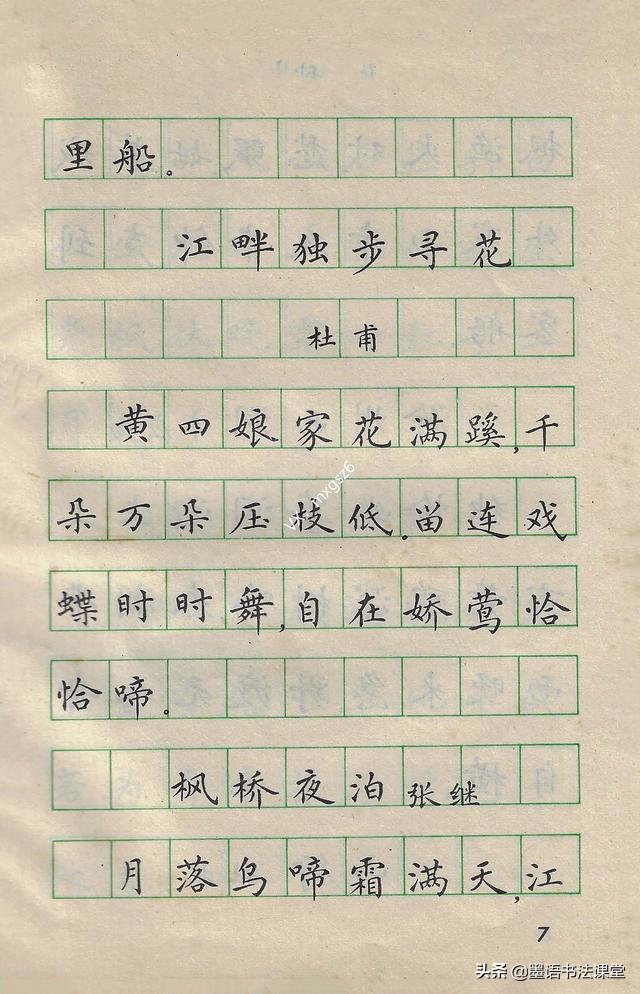 里船。
江畔独步寻花
杜甫
黄四娘家花满蹊,千
朵万朵压枝低。畄连戏
蝶时时舞,自在娇莺恰
恰啼。
枫桥夜泊 张继
月落乌啼霜满天,江
7
头条 @墨语书法课堂